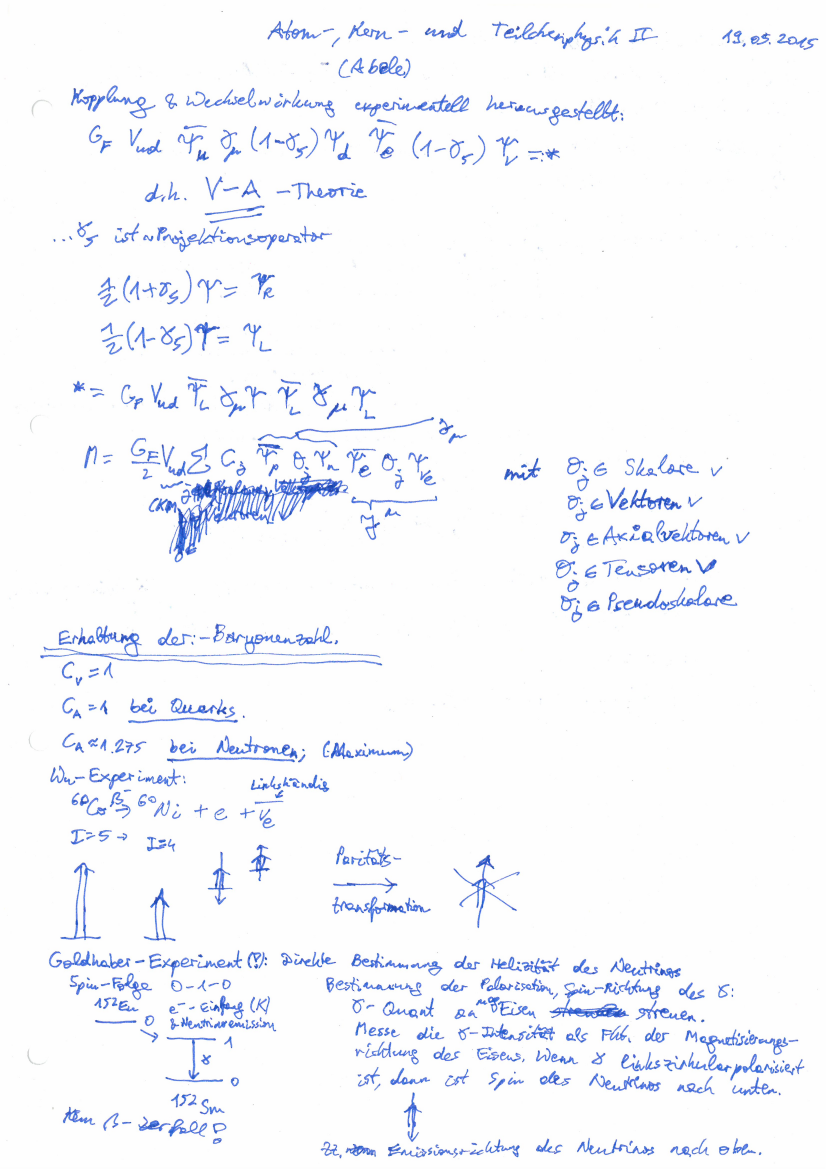 Atom-, Kern- und Teilchenphysik II 19.05.2015
(Abele)
Kopplung & Wechselwirkung experimentell herausgestellt:
G_F V_ud Ψ̅_u γ_μ (1-γ_5) Ψ_d Ψ̅_e (1-γ_5) Ψ_ν =:*
d.h. V-A -Theorie
...γ_5 ist ~Projektionsoperator
1/2 (1+γ_5) Ψ = Ψ_R
1/2 (1-γ_5) Ψ = Ψ_L
* = G_F V_ud Ψ̅_L γ_μ Ψ Ψ̅_L γ_μ Ψ_L
J_μ
M = G_F/2 V_ud Σ_j C_j Ψ̅_p O_j Ψ_n Ψ̅_e O_j Ψ_νe
CKM
J^μ
mit O_j ∈ Skalare ✓
O_j ∈ Vektoren ✓
O_j ∈ Axialvektoren ✓
O_j ∈ Tensoren ✓
O_j ∈ Pseudoskalare
Erhaltung der: -Baryonenzahl.
C_V = 1
C_A = 1 bei Quarks.
C_A ≈ 1.275 bei Neutronen; (Maximum)
Wu-Experiment:
Linkshändig
⁶⁰Co β⁻→ ⁶⁰Ni + e + ν̅_e
I=5 → I=4
Paritäts-
transformation
Goldhaber-Experiment(!): Direkte Bestimmung der Helizität des Neutrinos
Spin-Folge 0-1-0
¹⁵²Eu 0 e⁻-Einfang (K)
& Neutrinoemission
1
γ
0
¹⁵²Sm
Kein β-Zerfall!
Bestimmung der Polarisation, Spin-Richtung des γ:
γ-Quant an mag Eisen streuen.
Messe die γ-Intensität als Fkt. der Magnetisierungs-
richtung des Eisens. Wenn γ linkszirkularpolarisiert
ist, dann ist Spin des Neutrinos nach unten.
Emissionsrichtung des Neutrinos nach oben.